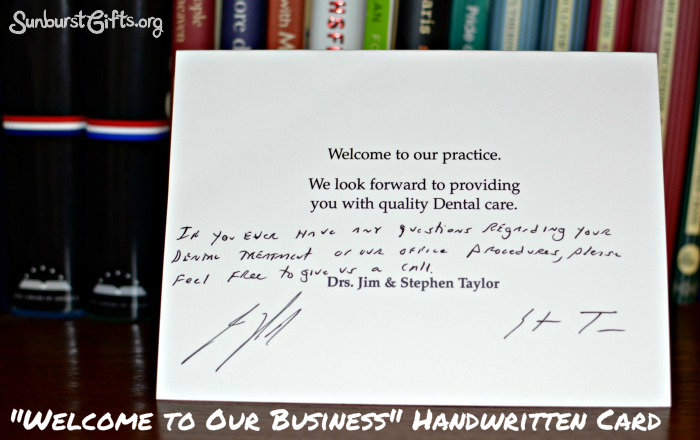 SunburstGifts.org
Welcome to our practice.
We look forward to providing
you with quality Dental care.
If you ever have any questions regarding your
Dental treatment or our office procedures, please
feel free to give us a call.
Drs. Jim & Stephen Taylor
"Welcome to Our Business" Handwritten Card